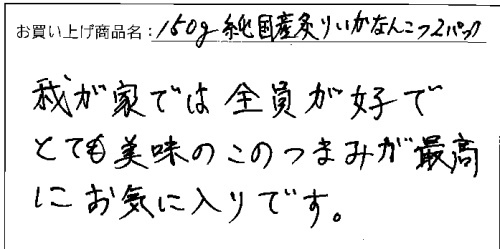 お買い上げ商品名：150g純国産炙りいかなんこつ2パック
我が家では全員が好で
とても美味のこのつまみが最高
にお気に入りです。